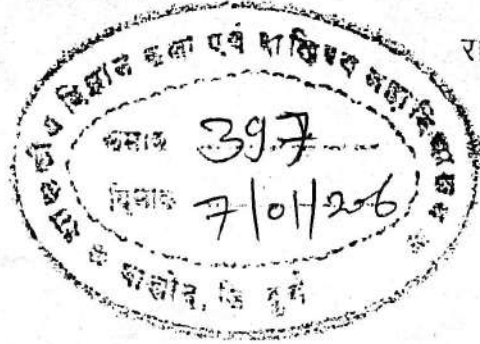 शासकीय विज्ञान कला एवं वाणिज्य महाविद्यालय
क्रमांक 397
दिनांक 7/01/206
बालोद, जि दुर्ग